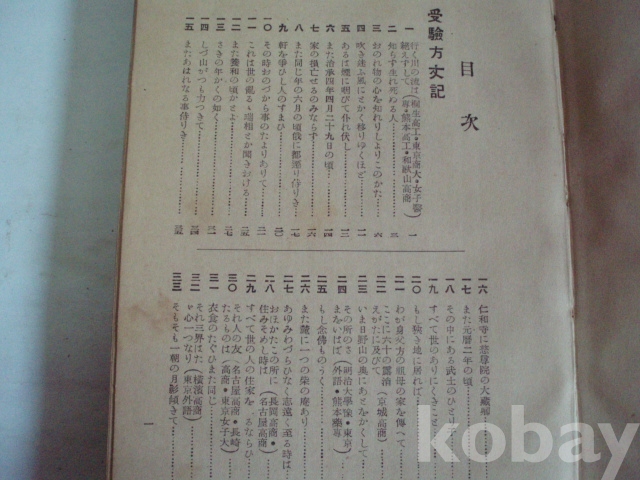 目次
受驗方丈記
一 行く川の流は(桐生高工・東京商大・女子醫
絶えずして(專・熊本高工・和歌山高商)……一
二 知らず生れ死ぬる人
三 おのれ物の心を知れりしよりこのかた……六
四 吹き迷ふ風にとかく移りゆくほど
五 あるは煙に咽びて仆れ伏し……一三
六 また治承四年四月二十九日の頃……一四
七 家の損亡せるのみならず……一六
八 また同じ年の六月の頃俄に都遷り侍りき……一七
九 軒を爭ひし人のすまひ……二〇
一〇 その時おのづから事のたよりありて
一一 これは世の亂るゝ瑞相とか聞きおける
一二 また養和の頃かとよ
一三 さきの年かくの如く
一四 しづ山がつも力つきて
一五 またあはれなる事侍りき
一六 仁和寺に慈尊院の大藏卿
一七 また元曆二年の頃
一八 その中にある武士のひと
一九 すべて世のありにくきこと
二〇 もし狹き地に居れば
二一 わが身父方の祖母の家を傳へて
二二 ここに六十の露消(京城高商)
えがたに及びて
二三 いま日野山の奧にあとをかくして
二四 その所のさ(明治大學豫・東京
まをいはば(外語・熊本藥專
二五 もし念佛ものうく
二六 また麓に一つの柴の庵あり
二七 あゆみわづらひなく志遠く至る時は
二八 おほかたこの所に(長岡高商・
住みそめし時は(名古屋高商)
二九 すべて世の人の住家を
三〇 それ人の友(名古屋高商・長崎
たるものは(高商・東京女子大)
三一 衣食のたぐひまた同じ
三二 それ三界はた(橫濱高商)
ゞ心一つなり(東京外語)
三三 そもそも一期の月影傾きて
一
kobay